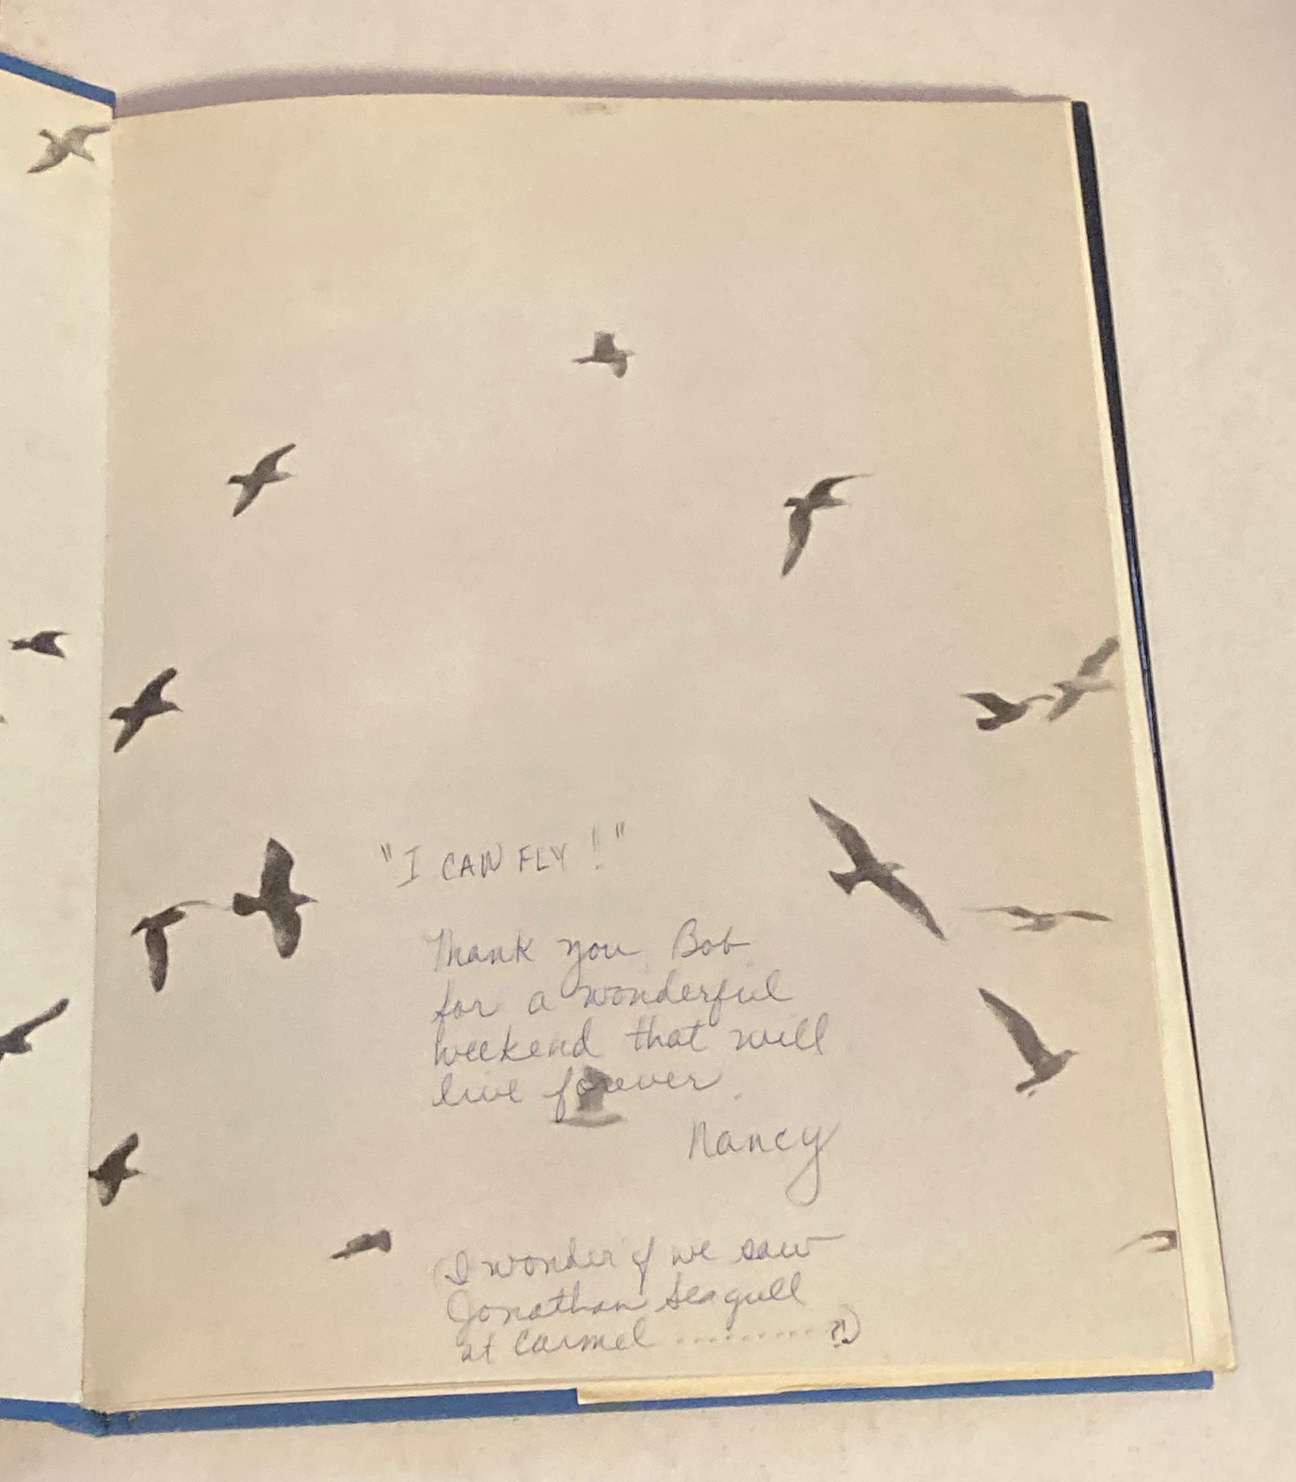 "I CAN FLY!"
Thank you Bob
for a wonderful
weekend that will
live forever.
Nancy
(I wonder if we saw
Jonathan Seagull
at Carmel ..........?!)